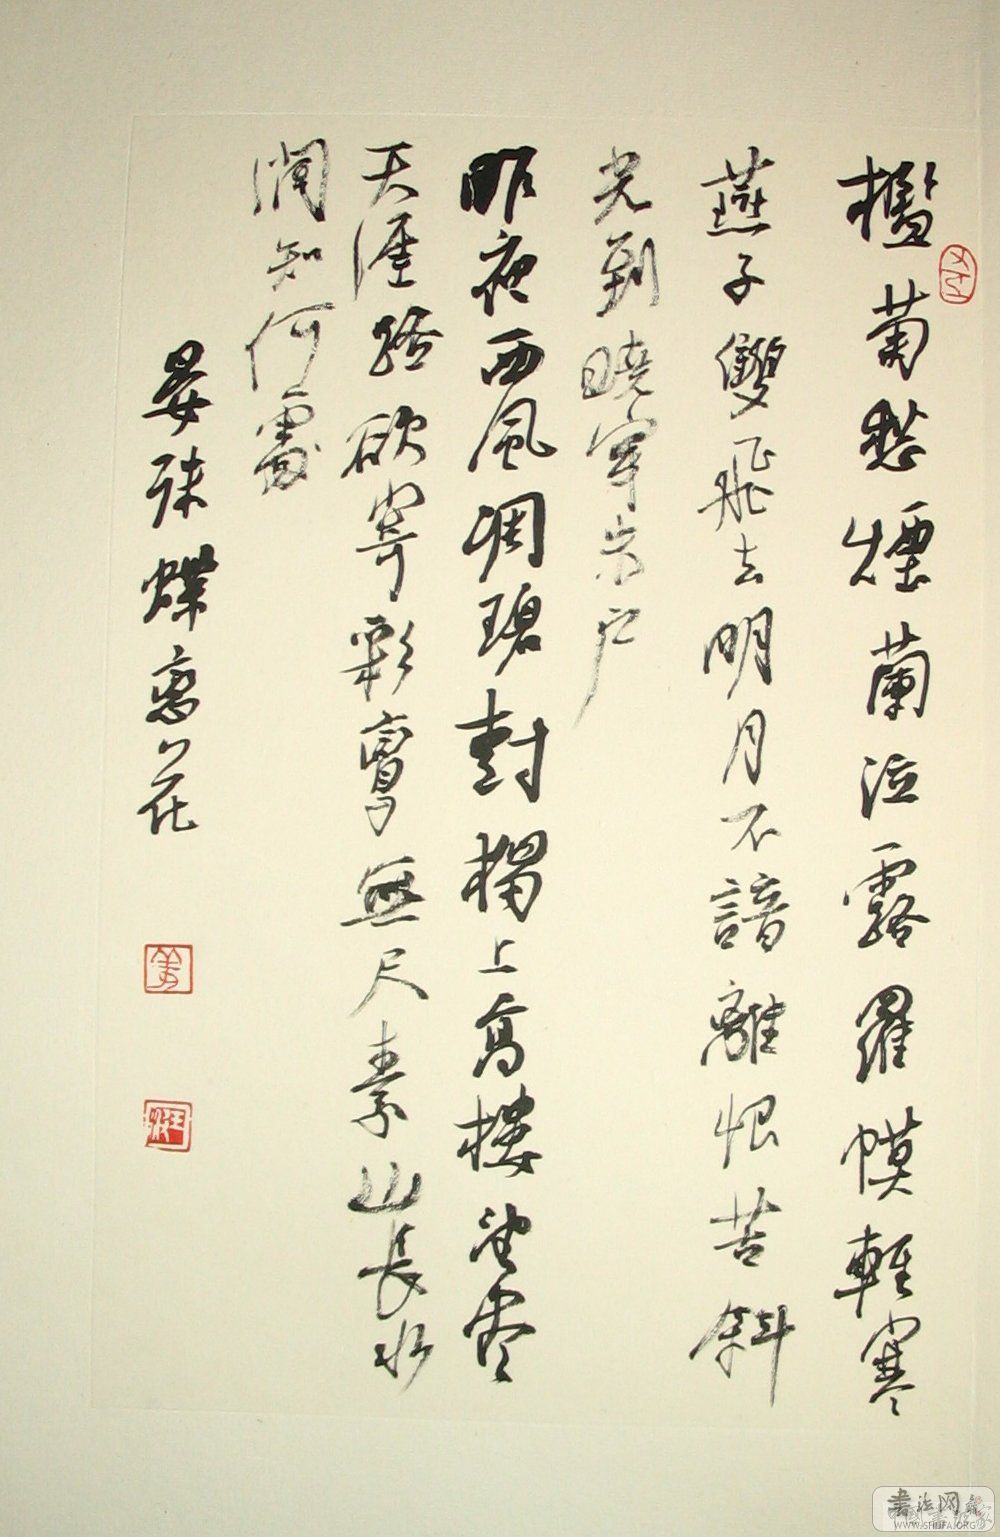 檻菊愁煙蘭泣露羅幙輕寒
燕子雙飛去明月不諳離恨苦斜
光到曉穿朱戶
昨夜西風凋碧樹獨上高樓望盡
天涯路欲寄彩無尺素山長水
闊知何處
晏殊蝶戀花
WWW.SHUFA.ORG